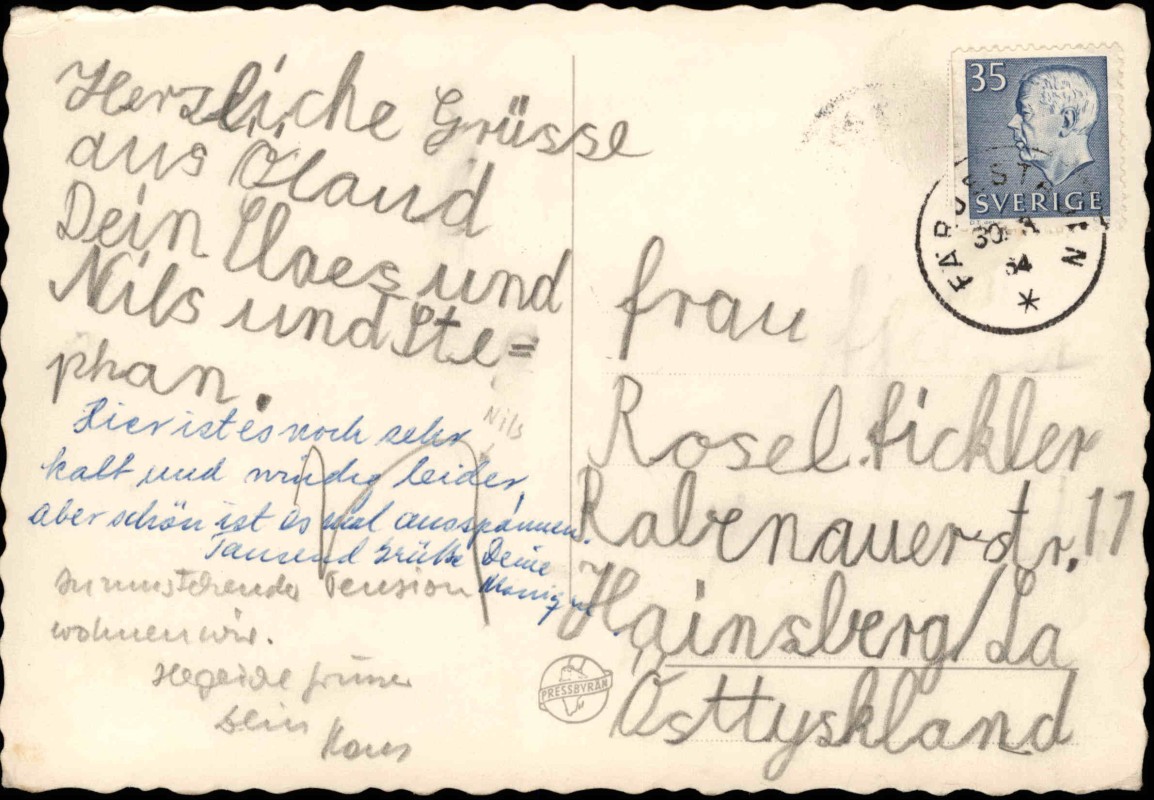 Herzliche Grüsse
aus Öland
Dein Claes und
Nils und Ste=
phan.
Nils
Hier ist es noch sehr
kalt und windig leider,
aber schön ist es mal ausspannen.
Tausend Grüße Deine
Pension
wohnen wir.
Dein
35
SVERIGE
FÄRJESTADEN
30
64
frau
Rosel. Fickler
Rabenauerstr. 11
Hainsberg/Sa
Östtyskland
PRESSBYRÅN